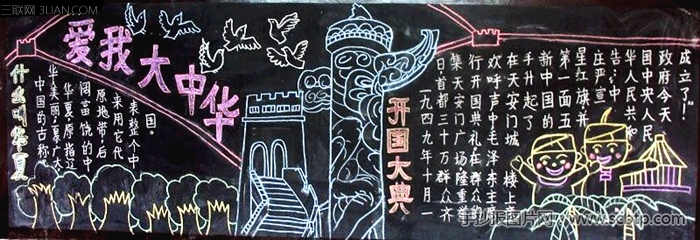 三联网 3LIAN.COM
爱我大中华
什么叫华夏
中国的古称
华美丽;夏广大
华夏原指辽
阔富饶的中
原地带,后
采用它代
表整个中
国。
开国大典
一九四九年十月一
日首都三十万群众齐
集天安门广场隆重举
行开国典礼在群众的
欢呼声中毛泽东主席
在天安门城楼上亲
手升起了
新中国的
第一面五
星红旗并
庄严宣
告:中
华人民共和
国中央人民
政府今天
成立了!